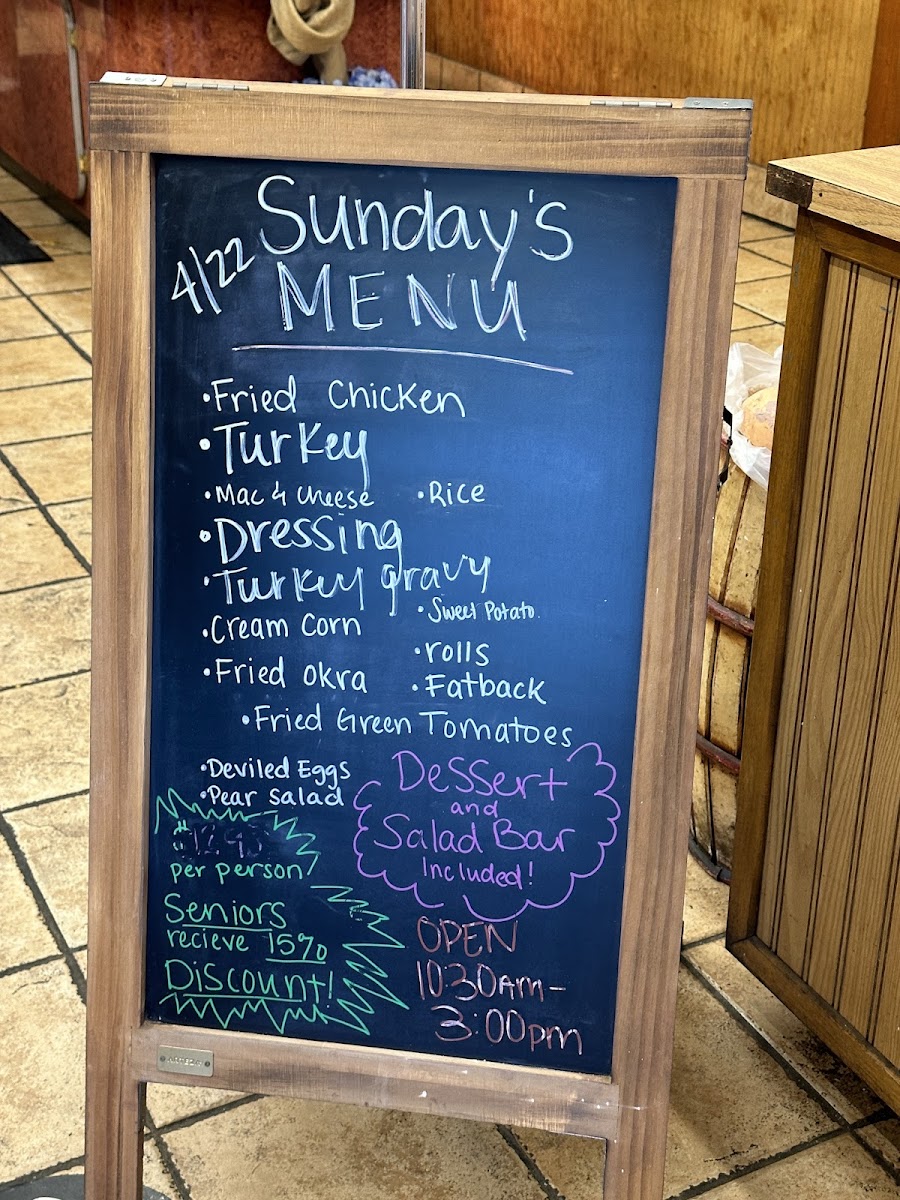 Sunday's
4/22
MENU
•Fried Chicken
•Turkey
•Mac & Cheese •Rice
•Dressing
•Turkey gravy
•Sweet Potato
•Cream Corn
•rolls
•Fried okra
•Fatback
•Fried Green Tomatoes
•Deviled Eggs
•Pear Salad
Dessert
and
Salad Bar
Included!
per person
Seniors
recieve 15%
Discount!
OPEN
10:30am-
3:00pm